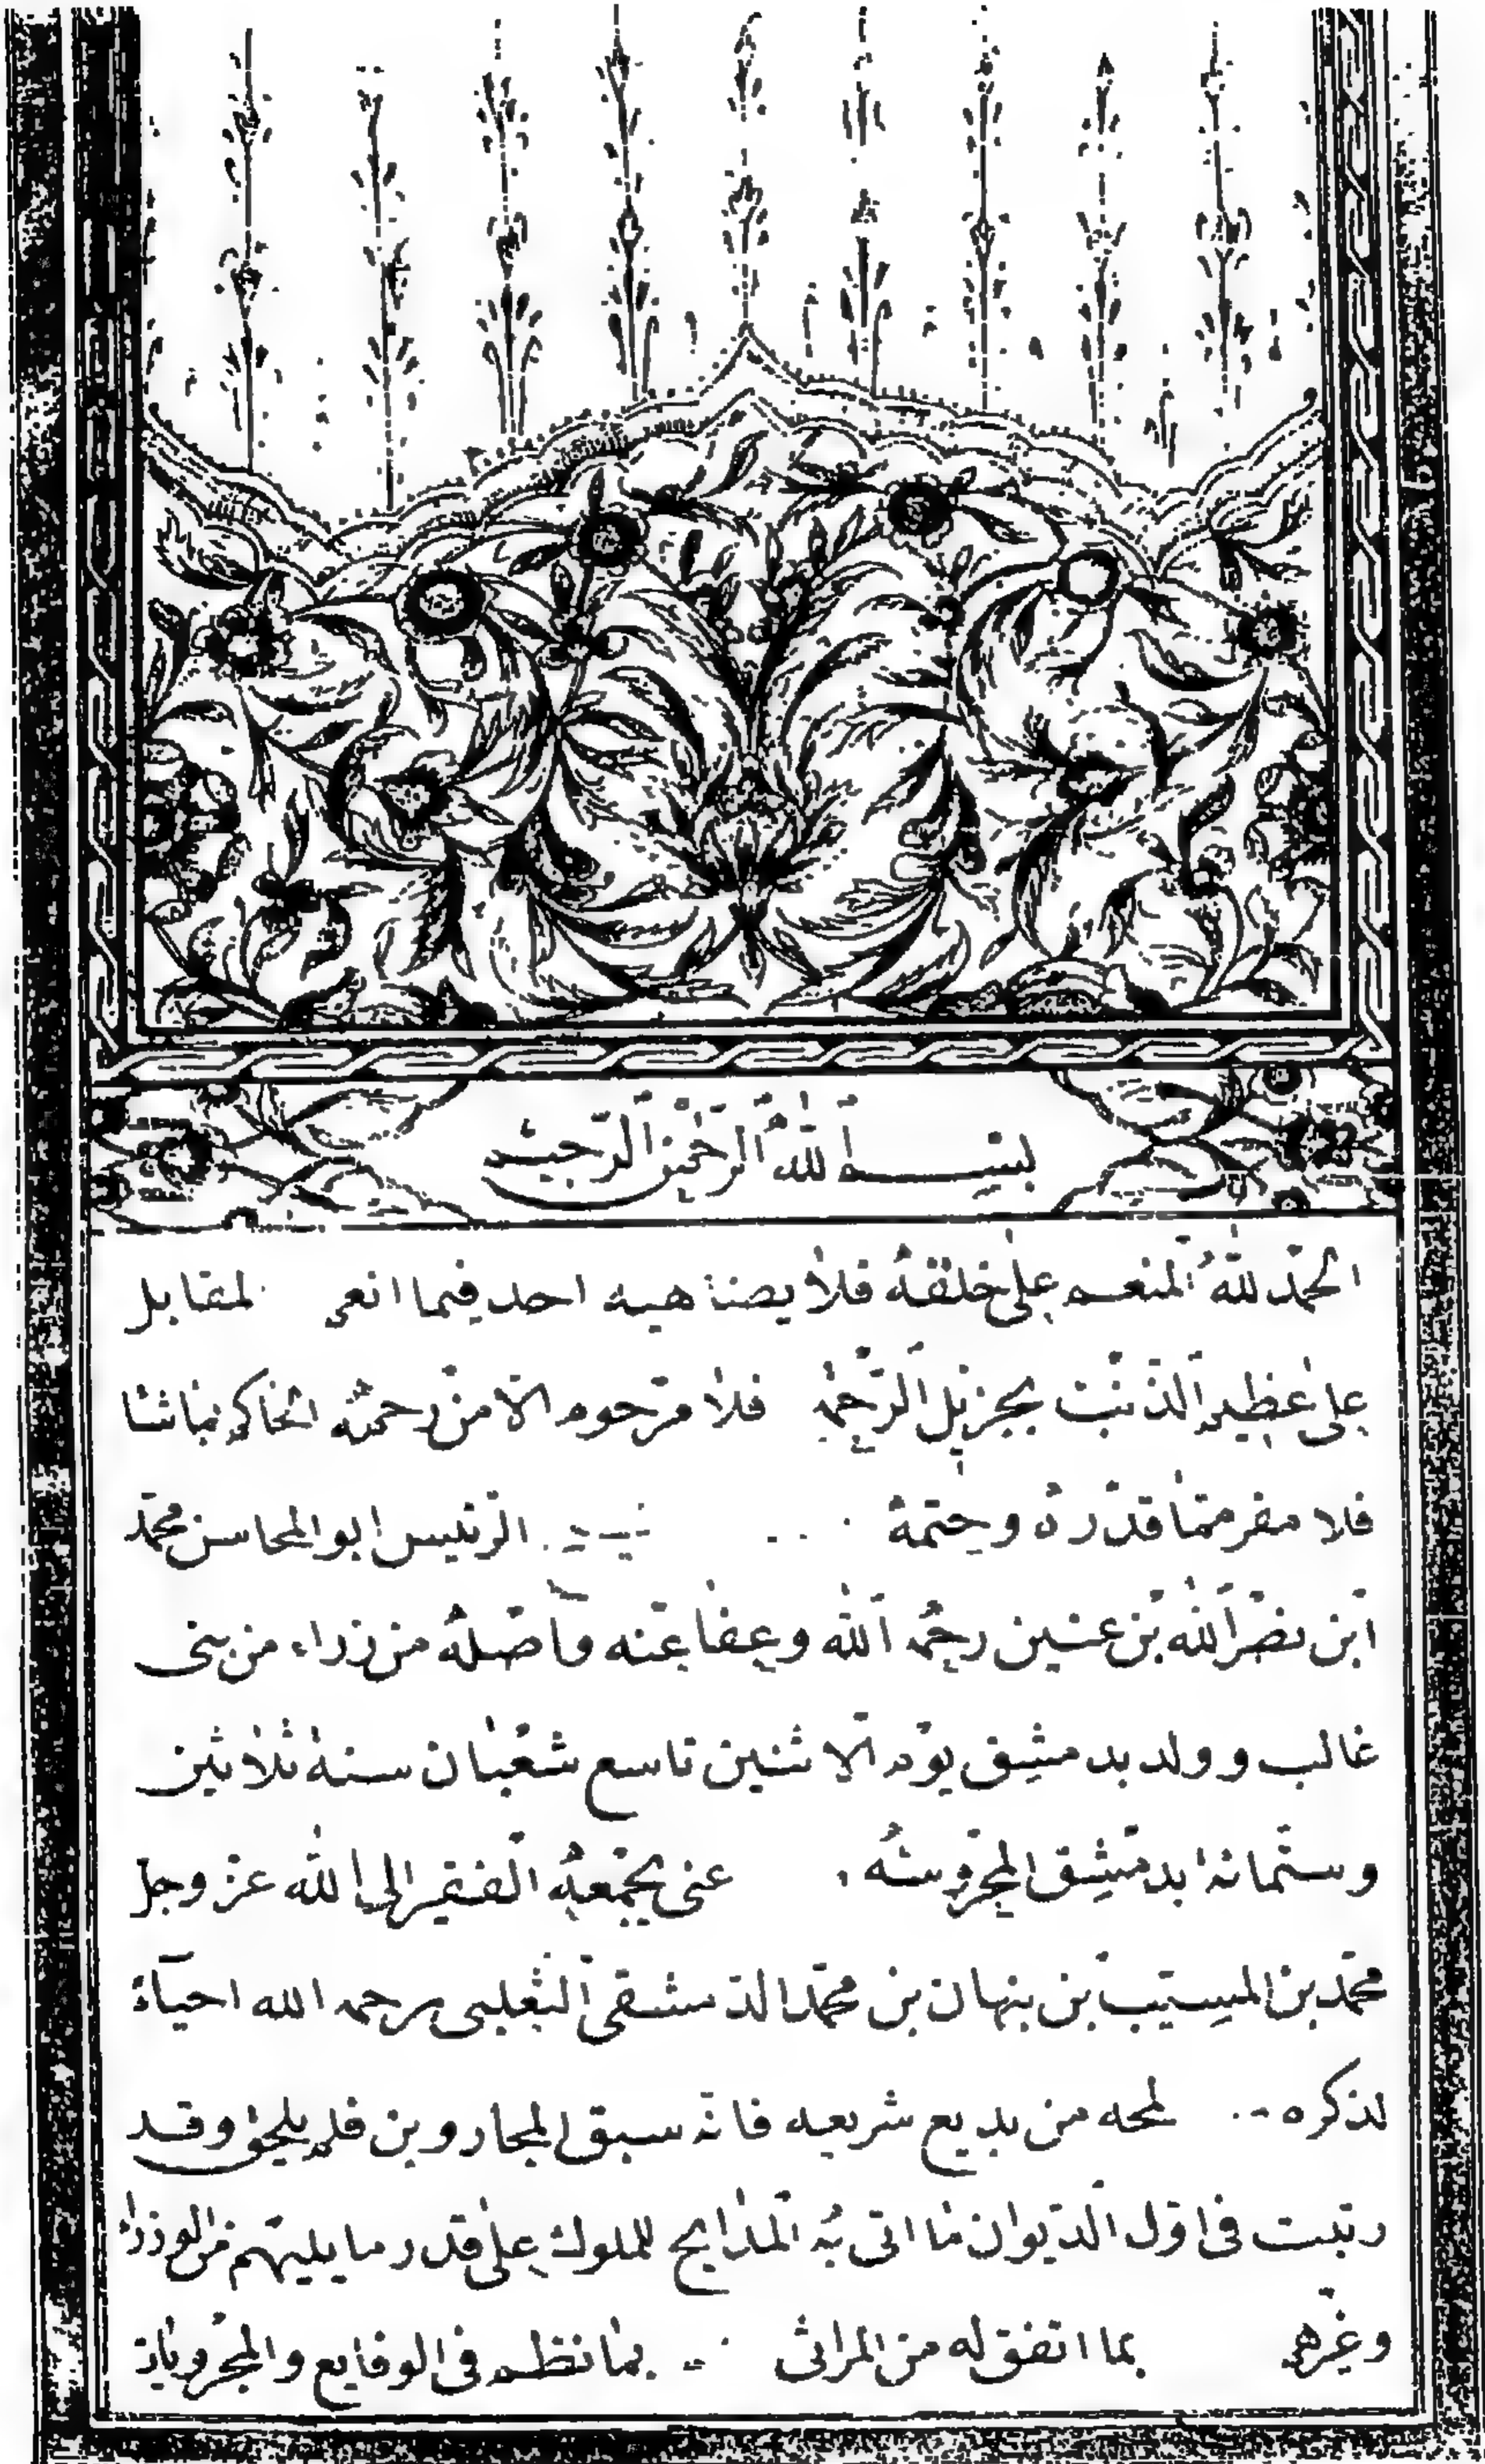 بسم الله الرحمن الرحيم
الحمد لله المنعم على خلقه فلا يضاهيه احد فيما انعم لمقابل
على عظيم الذنب بجزيل الرحمة فلا مرحوم الا من رحمته الحاكم بما شا
فلا مفر مما قدره وحتمه الرئيس ابو المحاسن محمد
ابن نصر الله بن عنين رحمه الله وعفا عنه واصله من زراء من بني
غالب وولد بدمشق يوم الاثنين تاسع شعبان سنة ثلاثين
وستمائة بدمشق المحروسة عنى بجمعه الفقير الى الله عز وجل
محمد بن المسيب بن بنهان بن محمد الدمشقي الثعلبي رحمه الله احياء
لذكره لمحه من بديع شريعه فانه سبق المجاروين فلم يلحق وقد
رتبت في اول الديوان ما اتى به المدايح للملوك على قدر ما يليهم من الوزراء
وغيرهم بما اتفق له من المراثي بما نظم في الوقايع والمجرويات